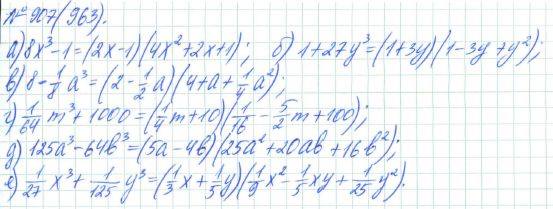 №907(963).
а) 8x³-1=(2x-1)(4x²+2x+1); б) 1+27y³=(1+3y)(1-3y+y²);
в) 8-1/8a³=(2-1/2a)(4+a+1/4a²);
г) 1/64m³+1000=(1/4m+10)(1/16-5/2m+100);
д) 125a³-64b³=(5a-4b)(25a²+20ab+16b²);
е) 1/27x³+1/125y³=(1/3x+1/5y)(1/9x²-1/5xy+1/25y²).